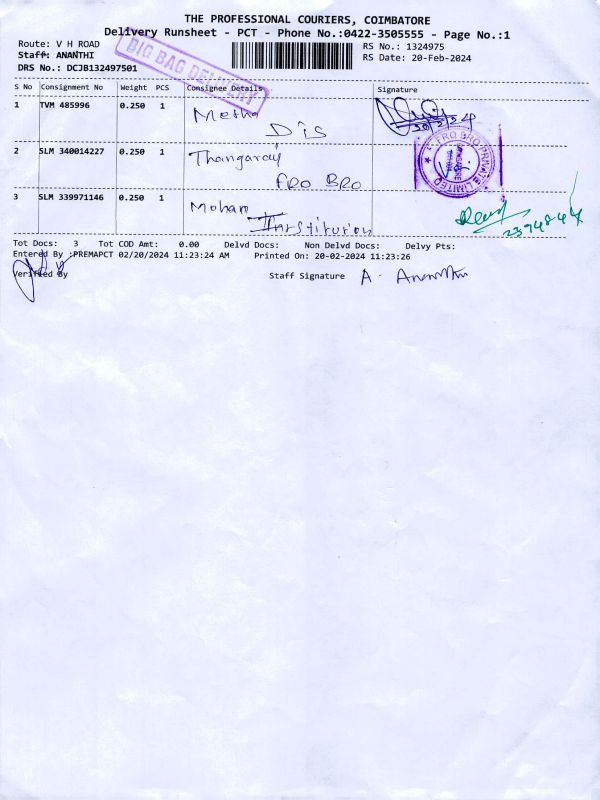 THE PROFESSIONAL COURIERS, COIMBATORE
Delivery Runsheet - PCT - Phone No.:0422-3505555 - Page No.:1
Route: V H ROAD
RS No.: 1324975
Staff: ANANTHI
RS Date: 20-Feb-2024
DRS No.: DCJB132497501
BIG BAG DELIVERY
S No Consignment No Weight PCS Consignee Details Signature
1 TVM 485996 0.250 1 Metha
Dis
20/2/24
2 SLM 340014227 0.250 1 Thangaraj
FRO BRO
FRO BRO PRIVATE LIMITED
3 SLM 339971146 0.250 1 Mohan
Institution
Tot Docs: 3 Tot COD Amt: 0.00 Delvd Docs: Non Delvd Docs: Delvy Pts:
Entered By :PREMAPCT 02/20/2024 11:23:24 AM Printed On: 20-02-2024 11:23:26
Verified By Staff Signature A. Ananthi